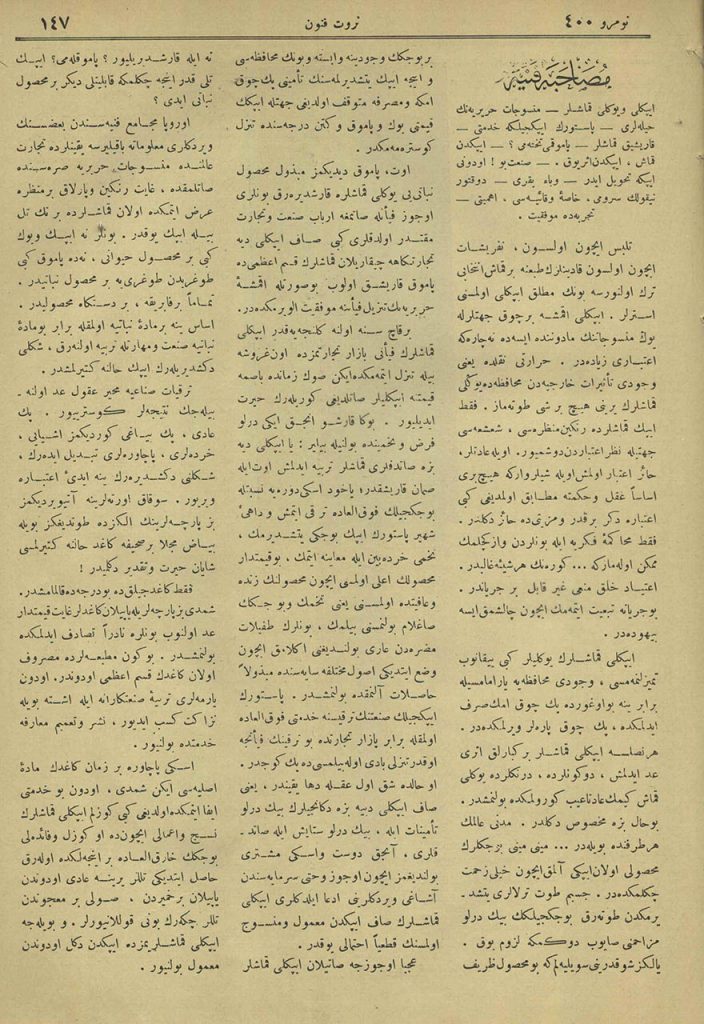 نومرو ٤٠٠
ثروت فنون
١٤٧
مصاحبهٔ فنیه
ایپكلی ویوكلی قماشلر — منسوجات حریریه‌نك
حیله‌لری — پاستورك ایپكجیلكه خدمتی —
قاریشیق قماشلر — پاموقمی تخته‌می ؟ — ایپكدن
قماش ، ایپكدن اثر یوق . — صنعت بو ! اودونی
ایپكه تحویل ایدر — وباء بقری — دوقتور
نیقولك سرومی ، خاصهٔ وقائیه‌سی ، اهمیتی —
تجربه‌ده موفقیت .
تلبس ایچون اولسون ، تفریشات
ایچون اولسون قادینلرك طبعنه بر قماش انتخابی
ترك اولنورسه بونك مطلق ایپكلی اولمسنی
استرلر . ایپكلی اقمشه بر چوق جهتلرله
یوك منسوجاتنك مادوننده ایسه‌ده نه‌چاره‌كه
اعتباری زیاده‌در . حرارتی نقلده یعنی
وجودی تأثیرات خارجیه‌دن محافظه‌ده یوكلی
قماشلرك یرینی هیچ بر شی طوته‌ماز . فقط
ایپك قماشلرده رنكین منظره‌سی ، شعشعه‌سی
جهتیله نظر اعتباردن دوشمیور . اویله عادتلر ،
حائز اعتبار اولمش اویله شیلر واركه هیچ بری
اساساً عقل وحكمته مطابق اولمدیغی كبی
اعتباره دكر بر قدر ومزیتی‌ده حائز دكلدر .
فقط محاكمهٔ فكریه ایله بونلردن وازكچلمك
ممكن اوله‌مازكه ... كوره‌نك هر شیئه غالبدر .
اعتیاد خلق منعی غیر قابل بر جریاندر .
بو جریانه تبعیت ایتمه‌مك ایچون چالشمق ایسه
بیهوده‌در .
ایپكلی قماشلرك یوكلیلر كبی ییقانوب
تمیزلنمه‌مسی ، وجودی محافظه‌یه یارامامسیله
برابر ینه بو اوغورده پك چوق امك صرف
ایدلمكده ، پك چوق پاره‌لر ویرلمكده‌در .
هر نصلسه ایپكلی قماشلر بر كبارلق اثری
عد ایدلمش ، دوكونلرده ، درنكلرده یوكلی
قماش كیمك عادتاعیب كورولمكده بولنمشدر .
بوحال بزه مخصوص دكلدر . مدنی عالمك
هر طرفنده بویله‌در ... مینی مینی بزجكلرك
محصولی اولان ایپكی آلمق ایچون خیلی زحمت
چكلمكده‌در . جسیم طوت ترلالری یتشد ـ
یرمكدن طوته‌رق بوجكجیلكك بیك درلو
مزاحمنی صایوب دوكمكه لزوم یوق .
یالكز شوقدرنی سویلیه‌لم‌كه بو محصول ظریف
بر بوجكك وجودینه وابسته وبونك محافظه‌سی
و اینجه ایپك یتشدیرلمسنك تأمینی پك چوق
امكه ومصرفه متوقف اولدیغی جهتله ایپكك
قیمتی یوك و پاموق و كتن درجه‌سنده تنزل
كوستره‌مه‌مكدر .
اوت ، پاموق دیدیكمز مبذول محصول
نباتی‌بی یوكلی قماشلره قارشدیره‌رق بونلری
اوجوز فیأتله صاتمغه ارباب صنعت وتجارت
مقتدر اولدقلری كبی صاف ایپكلی دیه
تجارتكاهه چیقاریلان قماشلرك قسم اعظمی‌ده
پاموق قاریشق اولوب بوصورتله اقمشهٔ
حریریه‌نك تنزیل فیأتنه موفقیت الویرمكده‌در .
برقاچ سنه اولنه كلنجه‌یه‌قدر ایپكلی
قماشلرك فیأتی بازار تجارتمزده اون غروشه
بیله تنزل ایتمه‌مكده‌ایكن صوك زمانده باصمه
قیمتنه ایپكلیلر صاتلدیغی كوریله‌رك حیرت
ایدیلیور . بوكا قارشو انجق ایكی درلو
فرض و تخمینده بولنیله بیلیر : یا ایپكلی دیه
بزه صاتدقلری قماشلر تربیه ایدلمش اوت ایله
صمان قاریشقدر ؛ یاخود اسكی دوره‌یه نسبتله
بوجكجیلك فوق‌العاده ترقی ایتمش و داهیٔ
شهیر پاستورك ایپك بوجكی یتشدیرمك ،
تخمی خرده‌بین ایله معاینه ایتمك ، بو قیمتدار
محصولك اعلی اولمسی ایچون محصولنك زنده
وعاقبتده اولمسنی یعنی تخمك وبوجكك
صاغلام بولنمسنی بیلمك ، بونلرك طفیلات
مضره‌دن عاری بولندیغنی اكلامق ایچون
وضع ایتدیكی اصول مختلفه سایه‌سنده مبذولاً
حاصلات آلنمقده بولنمشدر . پاستورك
ایپكجیلك صنعتنك ترقیسنه خدمتی فوق‌العاده
اولمقله برابر بازار تجارتده بو ترقینك فیأتجه
اوقدر تنزلی بادی اوله‌بیلمسی‌ده پك كوجدر .
او حالده شق اول عقله دها یقیندر ، یعنی
صاف ایپكلی دییه بزه دكانجیلرك بیك درلو
تأمینات ایله ، بیك درلو ستایش ایله صاتد ـ
قلری ، آنجق دوست واسكی مشتری
بولندیغمز ایچون اوجوز وحتی سرمایه‌سندن
آشاغی ویردكلرینی ادعا ایلدكلری ایپكلی
قماشلرك صاف ایپكدن معمول ومنسوج
اولمسنك قطعیاً احتمالی یوقدر .
عجبا اوجوزجه صاتیلان ایپكلی قماشلر
نه ایله قارشدیریلیور ؟ پاموقله‌می ؟ ایپك
تلی قدر اینجه چكلمكه قابلیتلی دیكر بر محصول
نباتی ایدی ؟
اوروپا مجامع فنیه‌سندن بعضسنك
ویردكلری معلوماته باقیلیرسه یقینلرده تجارت
عالمنده منسوجات حریریه صره‌سنده
صاتلمقده ، غایت رنكین وپارلاق بر منظره
عرض ایتمكده اولان قماشلرده بر تك تل
بیله ایپك یوقدر . بونلر نه ایپك ویوك
كبی بر محصول حیوانی ، نه‌ده پاموق كبی
طوغریدن طوغری‌یه بر محصول نباتیدر .
تماماً بر فابریقه ، بر دستكاه محصولیدر .
اساس ینه بر مادهٔ نباتیه اولمقله برابر بو مادهٔ
نباتیه صنعت ومهارتله تربیه اولنه‌رق ، شكلی
دكشدیریله‌رك ایپك حالنه كتیرلمشدر .
ترقیات صناعیه محیر عقول عد اولنه ـ
بیله‌جك نتیجه‌لر كوسترییور . پك
عادی ، پك بیاغی كوردیكمز اشیایی ،
خرده‌لری ، پاچاوره‌لری تبدیل ایده‌رك ،
شكلنی دكشدیره‌رك ینه ابدیٔ اعتباره
ویریور . سوقاق اورته‌لرینه آتیویردیكمز
بز پارچه‌لرینك الكزده طوتدیغكز بویله
بیاض مجلا بر صحیفه كاغد حالنه كتیرلمسی
شایان حیرت وتقدیر دكلمیدر !
فقط كاغدجیلق‌ده بو درجه‌ده قالمامشدر .
شمدی بز پارچه‌لریله یاپیلان كاغدلر غایت قیمتدار
عد اولنوب بونلره نادراً تصادف ایدلمكده
بولنمشدر . بوكون مطبعه‌لرده مصروف
اولان كاغدك قسم اعظمی اودوندر ، اودون
یارمه‌لری تربیهٔ صنعتكارانه ایله اشته بویله
نزاكت كسب ایدیور ، نشر وتعمیم معارفه
خدمتده بولنیور .
اسكی پاچاوره بر زمان كاغدك مادهٔ
اصلیه‌سی ایكن شمدی ، اودون بو خدمتی
ایفا ایتمكده اولدیغی كبی كوزلم ایپكلی قماشلرك
نسج واعمالی ایچون‌ده او كوزل وفائده‌لی
بوجكك خارق‌العاده بر اینجه‌لكده اوله‌رق
حاصل ایتدیكی تللر یرینه عادی اودوندن
یاپیلان بر خمیردن ، صولی بر معجوندن
تللر چكه‌رك بونی قوللانیورلر . و بویله‌جه
ایپكلی قماشلریمزده ایپكدن دكل اودوندن
معمول بولنیور .